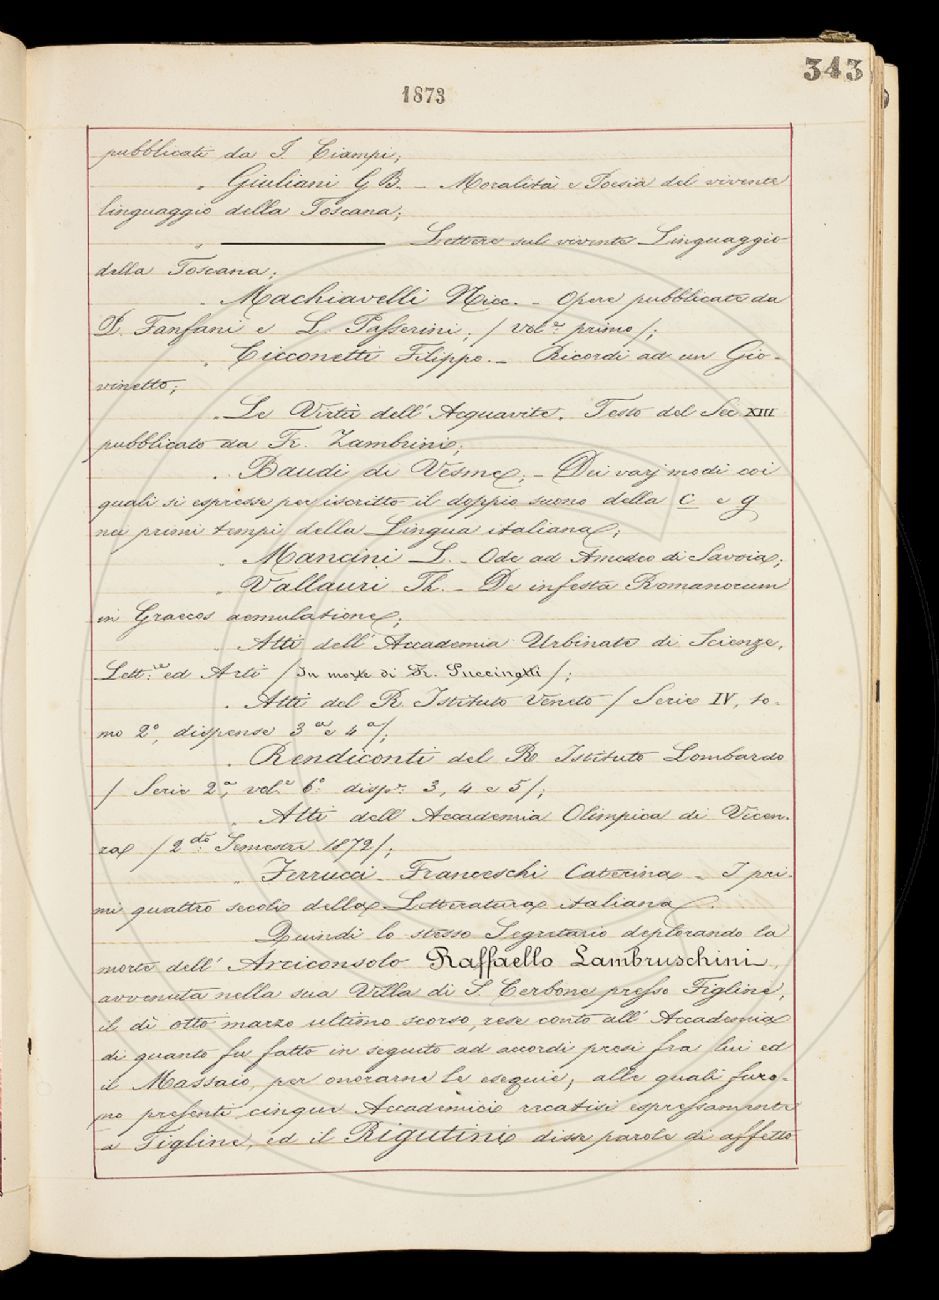 343
1873
pubblicati da I. Ciampi;
„ Giuliani G B. – Moralità e Poesia del vivente
linguaggio della Toscana;
„ ———— Lettere sul vivente Linguaggio
della Toscana;
„ Machiavelli Nicc. – Opere pubblicate da
P. Fanfani e L. Passerini; / vol.e primo /;
„ Cicconetti Filippo. – Ricordi ad un Gio-
vinetto;
„ Le Virtù dell' Acquavite. Testo del Sec XIII
pubblicato da Fr. Zambrini;
„ Baudi di Vesme; – Dei varj modi coi
quali si espresse per iscritto il doppio suono della c e g
nei primi tempi della Lingua italiana;
„ Mancini L. – Ode ad Amedeo di Savoia;
„ Vallauri Th. – De infesta Romanorum
in Graecos aemulatione;
„ Atti dell' Accademia Urbinate di Scienze,
Lett.re ed Arti / In morte di Fr. Puccinotti /;
„ Atti del R. Istituto Veneto / Serie IV, to-
mo 2°, dispense 3a e 4a /;
„ Rendiconti del R. Istituto Lombardo
/ Serie 2a, vol.e 6° disp.e 3, 4 e 5 /;
„ Atti dell' Accademia Olimpica di Vicen-
za / 2do Semestre 1872 /;
„ Ferrucci – Franceschi Caterina – I pri-
mi quattro secoli della Letteratura italiana.
Quindi lo stesso Segretario deplorando la
morte dell' Arciconsolo Raffaello Lambruschini,
avvenuta nella sua Villa di S. Cerbone presso Figline,
il dì otto marzo ultimo scorso, rese conto all' Accademia
di quanto fu fatto in seguito ad accordi presi fra lui ed
il Massaio, per onorarne le esequie; alle quali furo-
no presenti cinque Accademici recatisi espressamente
a Figline, ed il Rigutini disse parole di affetto